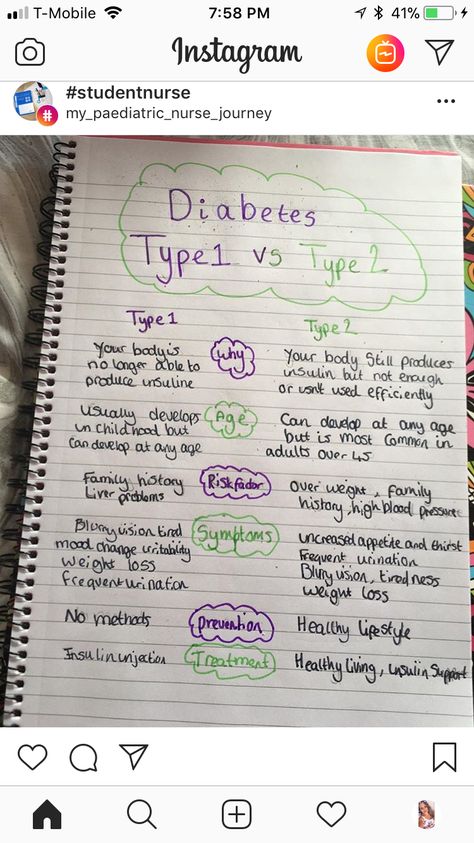 T-Mobile 7:58 PM 41%
Instagram
#studentnurse
my_paediatric_nurse_journey
Diabetes
Type1 vs Type 2
Type 1
Type 2
Your body is
no longer able to
produce insuline
Why
Your body Still produces
insulin but not enough
or isnt used efficiently
Usually develops
in childhood but
can develop at any age
Age
Can develop at any age
but is most common in
adults over 45
Family history
Liver problems
Riskfactor
Over weight, family
history, high blood pressure
Blurry vision tired
mood change irritability
Weight loss
Frequent urination
Symptoms
increased appetite and thirst
Frequent urination
Blurry vision, tiredness
Weight loss
No methods
Prevention
Healthy Lifestyle
Insulin injection
Treatment
Healthy Living, insulin Support